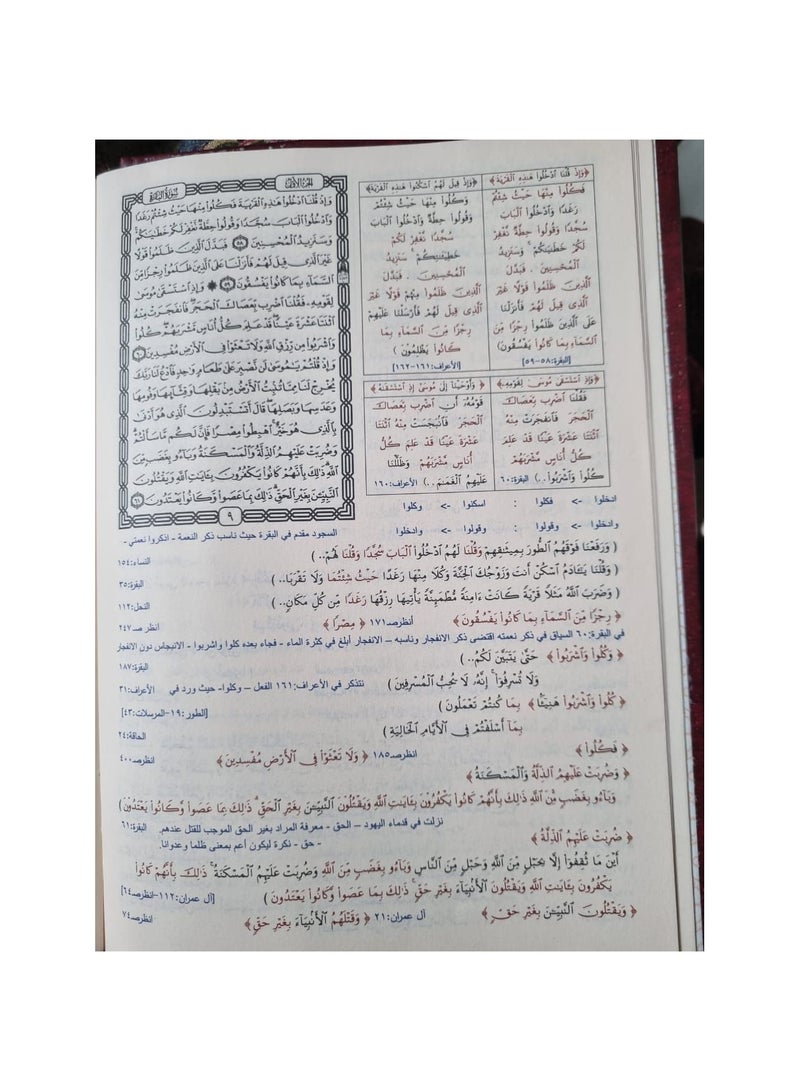 وَإِذْ قُلْنَا ٱدْخُلُوا۟ هَـٰذِهِ ٱلْقَرْيَةَ
فَكُلُوا۟ مِنْهَا حَيْثُ شِئْتُمْ
رَغَدًا وَٱدْخُلُوا۟ ٱلْبَابَ
سُجَّدًا وَقُولُوا۟ حِطَّةٌ نَّغْفِرْ
لَكُمْ خَطَـٰيَـٰكُمْ ۚ وَسَنَزِيدُ
ٱلْمُحْسِنِينَ . فَبَدَّلَ
ٱلَّذِينَ ظَلَمُوا۟ قَوْلًا غَيْرَ
ٱلَّذِى قِيلَ لَهُمْ فَأَنزَلْنَا
عَلَى ٱلَّذِينَ ظَلَمُوا۟ رِجْزًا مِّنَ
ٱلسَّمَآءِ بِمَا كَانُوا۟ يَفْسُقُونَ)
[البقرة:٥٨-٥٩]
﴿وَإِذْ قِيلَ لَهُمُ ٱسْكُنُوا۟ هَـٰذِهِ ٱلْقَرْيَةَ﴾
وَكُلُوا۟ مِنْهَا حَيْثُ شِئْتُمْ
وَقُولُوا۟ حِطَّةٌ وَٱدْخُلُوا۟ ٱلْبَابَ
سُجَّدًا نَّغْفِرْ لَكُمْ
خَطِيٓـَٔـٰتِكُمْ ۚ سَنَزِيدُ
ٱلْمُحْسِنِينَ . فَبَدَّلَ
ٱلَّذِينَ ظَلَمُوا۟ مِنْهُمْ قَوْلًا غَيْرَ
ٱلَّذِى قِيلَ لَهُمْ فَأَرْسَلْنَا عَلَيْهِمْ
رِجْزًا مِّنَ ٱلسَّمَآءِ بِمَا
كَانُوا۟ يَظْلِمُونَ )
[الأعراف:١٦١-١٦٢]
﴿وَإِذِ ٱسْتَسْقَىٰ مُوسَىٰ لِقَوْمِهِۦ﴾
فَقُلْنَا ٱضْرِب بِّعَصَاكَ
ٱلْحَجَرَ فَٱنفَجَرَتْ مِنْهُ
ٱثْنَتَا عَشْرَةَ عَيْنًا قَدْ عَلِمَ
كُلُّ أُنَاسٍ مَّشْرَبَهُمْ
كُلُوا۟ وَٱشْرَبُوا۟ ..) البقرة:٦٠
﴿ وَأَوْحَيْنَآ إِلَىٰ مُوسَىٰٓ إِذِ ٱسْتَسْقَىٰهُ ﴾
قَوْمُهُۥٓ أَنِ ٱضْرِب بِّعَصَاكَ
ٱلْحَجَرَ فَٱنۢبَجَسَتْ مِنْهُ ٱثْنَتَا
عَشْرَةَ عَيْنًا قَدْ عَلِمَ كُلُّ
أُنَاسٍ مَّشْرَبَهُمْ وَظَلَّلْنَا
عَلَيْهِمُ ٱلْغَمَـٰمَ ..) الأعراف:١٦٠
الجزء الأول
سورة البقرة
وَإِذْ قُلْنَا ٱدْخُلُوا۟ هَـٰذِهِ ٱلْقَرْيَةَ فَكُلُوا۟ مِنْهَا حَيْثُ شِئْتُمْ رَغَدًا
وَٱدْخُلُوا۟ ٱلْبَابَ سُجَّدًا وَقُولُوا۟ حِطَّةٌ نَّغْفِرْ لَكُمْ خَطَـٰيَـٰكُمْ ۚ
وَسَنَزِيدُ ٱلْمُحْسِنِينَ ٥٨ فَبَدَّلَ ٱلَّذِينَ ظَلَمُوا۟ قَوْلًا
غَيْرَ ٱلَّذِى قِيلَ لَهُمْ فَأَنزَلْنَا عَلَى ٱلَّذِينَ ظَلَمُوا۟ رِجْزًا مِّنَ
ٱلسَّمَآءِ بِمَا كَانُوا۟ يَفْسُقُونَ ٥٩ ۞ وَإِذِ ٱسْتَسْقَىٰ مُوسَىٰ
لِقَوْمِهِۦ فَقُلْنَا ٱضْرِب بِّعَصَاكَ ٱلْحَجَرَ ۖ فَٱنفَجَرَتْ مِنْهُ
ٱثْنَتَا عَشْرَةَ عَيْنًا ۖ قَدْ عَلِمَ كُلُّ أُنَاسٍ مَّشْرَبَهُمْ ۖ كُلُوا۟
وَٱشْرَبُوا۟ مِن رِّزْقِ ٱللَّهِ وَلَا تَعْثَوْا۟ فِى ٱلْأَرْضِ مُفْسِدِينَ ٦٠
وَإِذْ قُلْتُمْ يَـٰمُوسَىٰ لَن نَّصْبِرَ عَلَىٰ طَعَامٍ وَٰحِدٍ فَٱدْعُ لَنَا رَبَّكَ
يُخْرِجْ لَنَا مِمَّا تُنۢبِتُ ٱلْأَرْضُ مِنۢ بَقْلِهَا وَقِثَّآئِهَا وَفُومِهَا
وَعَدَسِهَا وَبَصَلِهَا ۖ قَالَ أَتَسْتَبْدِلُونَ ٱلَّذِى هُوَ أَدْنَىٰ
بِٱلَّذِى هُوَ خَيْرٌ ۚ ٱهْبِطُوا۟ مِصْرًا فَإِنَّ لَكُم مَّا سَأَلْتُمْ ۗ
وَضُرِبَتْ عَلَيْهِمُ ٱلذِّلَّةُ وَٱلْمَسْكَنَةُ وَبَآءُو بِغَضَبٍ مِّنَ
ٱللَّهِ ۗ ذَٰلِكَ بِأَنَّهُمْ كَانُوا۟ يَكْفُرُونَ بِـَٔايَـٰتِ ٱللَّهِ وَيَقْتُلُونَ
ٱلنَّبِيِّـۧنَ بِغَيْرِ ٱلْحَقِّ ۗ ذَٰلِكَ بِمَا عَصَوا۟ وَّكَانُوا۟ يَعْتَدُونَ ٦١
٩
ادخلوا -> فكلوا : اسكنوا -> وكلوا
وادخلوا -> وقولوا : وقولوا -> وادخلوا السجود مقدم في البقرة حيث ناسب ذكر النعمة - اذكروا نعمتي -
( وَرَفَعْنَا فَوْقَهُمُ ٱلطُّورَ بِمِيثَـٰقِهِمْ وَقُلْنَا لَهُمُ ٱدْخُلُوا۟ ٱلْبَابَ سُجَّدًا وَقُلْنَا لَهُمْ.. ) النساء:١٥٤
( وَقُلْنَا يَـٰٓـَٔادَمُ ٱسْكُنْ أَنتَ وَزَوْجُكَ ٱلْجَنَّةَ وَكُلَا مِنْهَا رَغَدًا حَيْثُ شِئْتُمَا وَلَا تَقْرَبَا.. ) البقرة:٣٥
( وَضَرَبَ ٱللَّهُ مَثَلًا قَرْيَةً كَانَتْ ءَامِنَةً مُّطْمَئِنَّةً يَأْتِيهَا رِزْقُهَا رَغَدًا مِّن كُلِّ مَكَانٍ.. ) النحل:١١٢
﴿ رِجْزًا مِّنَ ٱلسَّمَآءِ بِمَا كَانُوا۟ يَفْسُقُونَ ﴾ أنظرص١٧١ ﴿ مِصْرًا ﴾ انظر ص٢٤٧
في البقرة:٦٠ السياق في ذكر نعمته اقتضى ذكر الانفجار وناسبه - الانفجار أبلغ في كثرة الماء - فجاء بعده كلوا واشربوا - الانبجاس دون الانفجار
﴿ وَكُلُوا۟ وَٱشْرَبُوا۟ ﴾ حَتَّىٰ يَتَبَيَّنَ لَكُمُ.. ) البقرة:١٨٧
وَلَا تُسْرِفُوٓا۟ ۚ إِنَّهُۥ لَا يُحِبُّ ٱلْمُسْرِفِينَ ) نتذكر في الأعراف:١٦١ الفعل - وكلوا- حيث ورد في الأعراف:٣١
﴿ كُلُوا۟ وَٱشْرَبُوا۟ هَنِيٓـًٔۢا ﴾ بِمَا كُنتُمْ تَعْمَلُونَ ) [الطور:١٩-المرسلات:٤٣]
بِمَآ أَسْلَفْتُمْ فِى ٱلْأَيَّامِ ٱلْخَالِيَةِ ) الحاقة:٢٤
﴿ فَكُلُوا۟ ﴾ انظرص١٨٥ ﴿ وَلَا تَعْثَوْا۟ فِى ٱلْأَرْضِ مُفْسِدِينَ ﴾ انظرص٤٠٠
﴿ وَضُرِبَتْ عَلَيْهِمُ ٱلذِّلَّةُ وَٱلْمَسْكَنَةُ ﴾
وَبَآءُو بِغَضَبٍ مِّنَ ٱللَّهِ ذَٰلِكَ بِأَنَّهُمْ كَانُوا۟ يَكْفُرُونَ بِـَٔايَـٰتِ ٱللَّهِ وَيَقْتُلُونَ ٱلنَّبِيِّـۧنَ بِغَيْرِ ٱلْحَقِّ ۗ ذَٰلِكَ بِمَا عَصَوا۟ وَّكَانُوا۟ يَعْتَدُونَ )
نزلت في قدماء اليهود - الحق - معرفة المراد بغير الحق الموجب للقتل عندهم. البقرة:٦١
﴿ ضُرِبَتْ عَلَيْهِمُ ٱلذِّلَّةُ ﴾ - حق - نكرة ليكون أعم بمعنى ظلما وعدوانا.
أَيْنَ مَا ثُقِفُوٓا۟ إِلَّا بِحَبْلٍ مِّنَ ٱللَّهِ وَحَبْلٍ مِّنَ ٱلنَّاسِ وَبَآءُو بِغَضَبٍ مِّنَ ٱللَّهِ وَضُرِبَتْ عَلَيْهِمُ ٱلْمَسْكَنَةُ ۚ ذَٰلِكَ بِأَنَّهُمْ كَانُوا۟
يَكْفُرُونَ بِـَٔايَـٰتِ ٱللَّهِ وَيَقْتُلُونَ ٱلْأَنۢبِيَآءَ بِغَيْرِ حَقٍّ ۚ ذَٰلِكَ بِمَا عَصَوا۟ وَّكَانُوا۟ يَعْتَدُونَ ) [آل عمران:١١٢-انظرص٦٤]
﴿ وَيَقْتُلُونَ ٱلنَّبِيِّـۧنَ بِغَيْرِ حَقٍّ ﴾ آل عمران:٢١ ﴿ وَقَتْلَهُمُ ٱلْأَنۢبِيَآءَ بِغَيْرِ حَقٍّ ﴾ انظرص٧٤